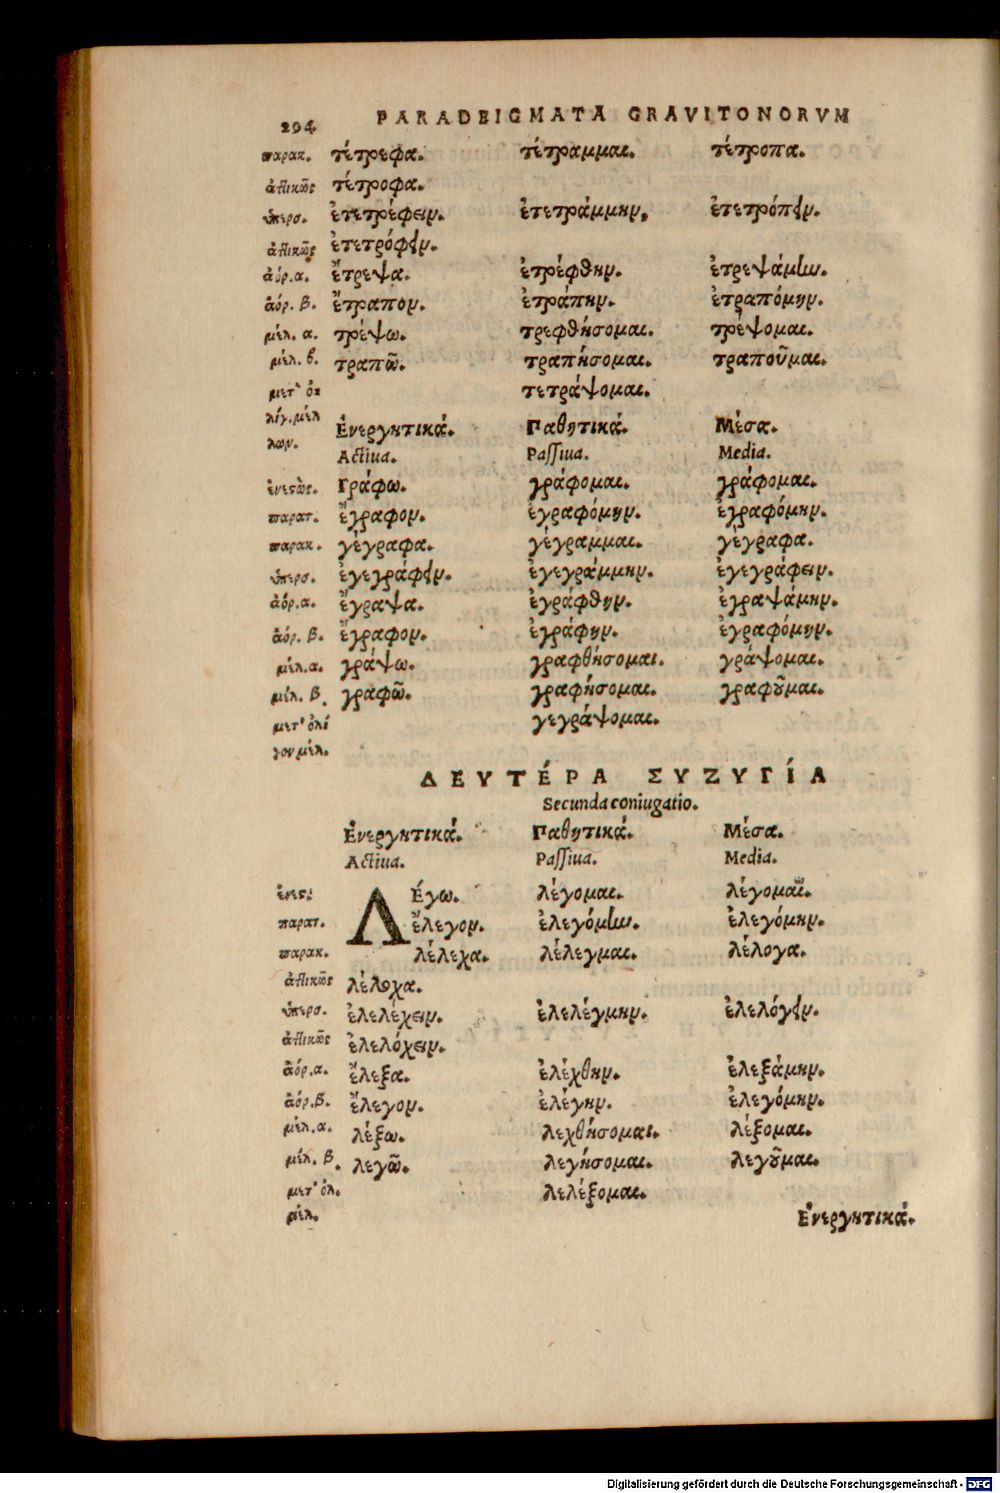 294 PARADEIGMATA GRAVITONORVM
παρακ. τέτρεφα. τέτραμμαι. τέτροπα.
ἀττικῶς τέτροφα.
ὑπερσ. ἐτετρέφειν. ἐτετράμμην, ἐτετρόπειν.
ἀττικῶς ἐτετρόφειν.
ἀόρ.α. ἔτρεψα. ἐτρέφθην. ἐτρεψάμην.
ἀόρ. β. ἔτραπον. ἐτράπην. ἐτραπόμην.
μέλ. α. τρέψω. τρεφθήσομαι. τρέψομαι.
μέλ. β. τραπῶ. τραπήσομαι. τραποῦμαι.
μετ' ὀ τετράψομαι.
λίγ. μέλ
λων. Ἐνεργητικά. Παθητικά. Μέσα.
Actiua. Passiua. Media.
ἐνεστώς. Γράφω. γράφομαι. γράφομαι.
παρατ. ἔγραφον. ἐγραφόμην. ἐγραφόμην.
παρακ. γέγραφα. γέγραμμαι. γέγραφα.
ὑπερσ. ἐγεγράφειν. ἐγεγράμμην. ἐγεγράφειν.
ἀόρ.α. ἔγραψα. ἐγράφθην. ἐγραψάμην.
ἀόρ. β. ἔγραφον. ἐγράφην. ἐγραφόμην.
μέλ.α. γράψω. γραφθήσομαι. γράψομαι.
μέλ. β. γραφῶ. γραφήσομαι. γραφοῦμαι.
μετ' ὀλί γεγράψομαι.
γον μέλ.
ΔΕΥΤΈΡΑ ΣΥΖΥΓΊΑ
Secunda coniugatio.
Ἐνεργητικά. Παθητικά. Μέσα.
Actiua. Passiua. Media.
ἐνεστ. ΛΈγω. λέγομαι. λέγομαι.
παρατ. ἔλεγον. ἐλεγόμην. ἐλεγόμην.
παρακ. λέλεχα. λέλεγμαι. λέλογα.
ἀττικῶς λέλοχα.
ὑπερσ. ἐλελέχειν. ἐλελέγμην. ἐλελόγειν.
ἀττικῶς ἐλελόχειν.
ἀόρ.α. ἔλεξα. ἐλέχθην. ἐλεξάμην.
ἀόρ.β. ἔλεγον. ἐλέγην. ἐλεγόμην.
μέλ.α. λέξω. λεχθήσομαι. λέξομαι.
μέλ. β. λεγῶ. λεγήσομαι. λεγοῦμαι.
μετ' ὀλ. λελέξομαι.
μέλ. Ἐνεργητικά.
Digitalisierung gefördert durch die Deutsche Forschungsgemeinschaft - DFG